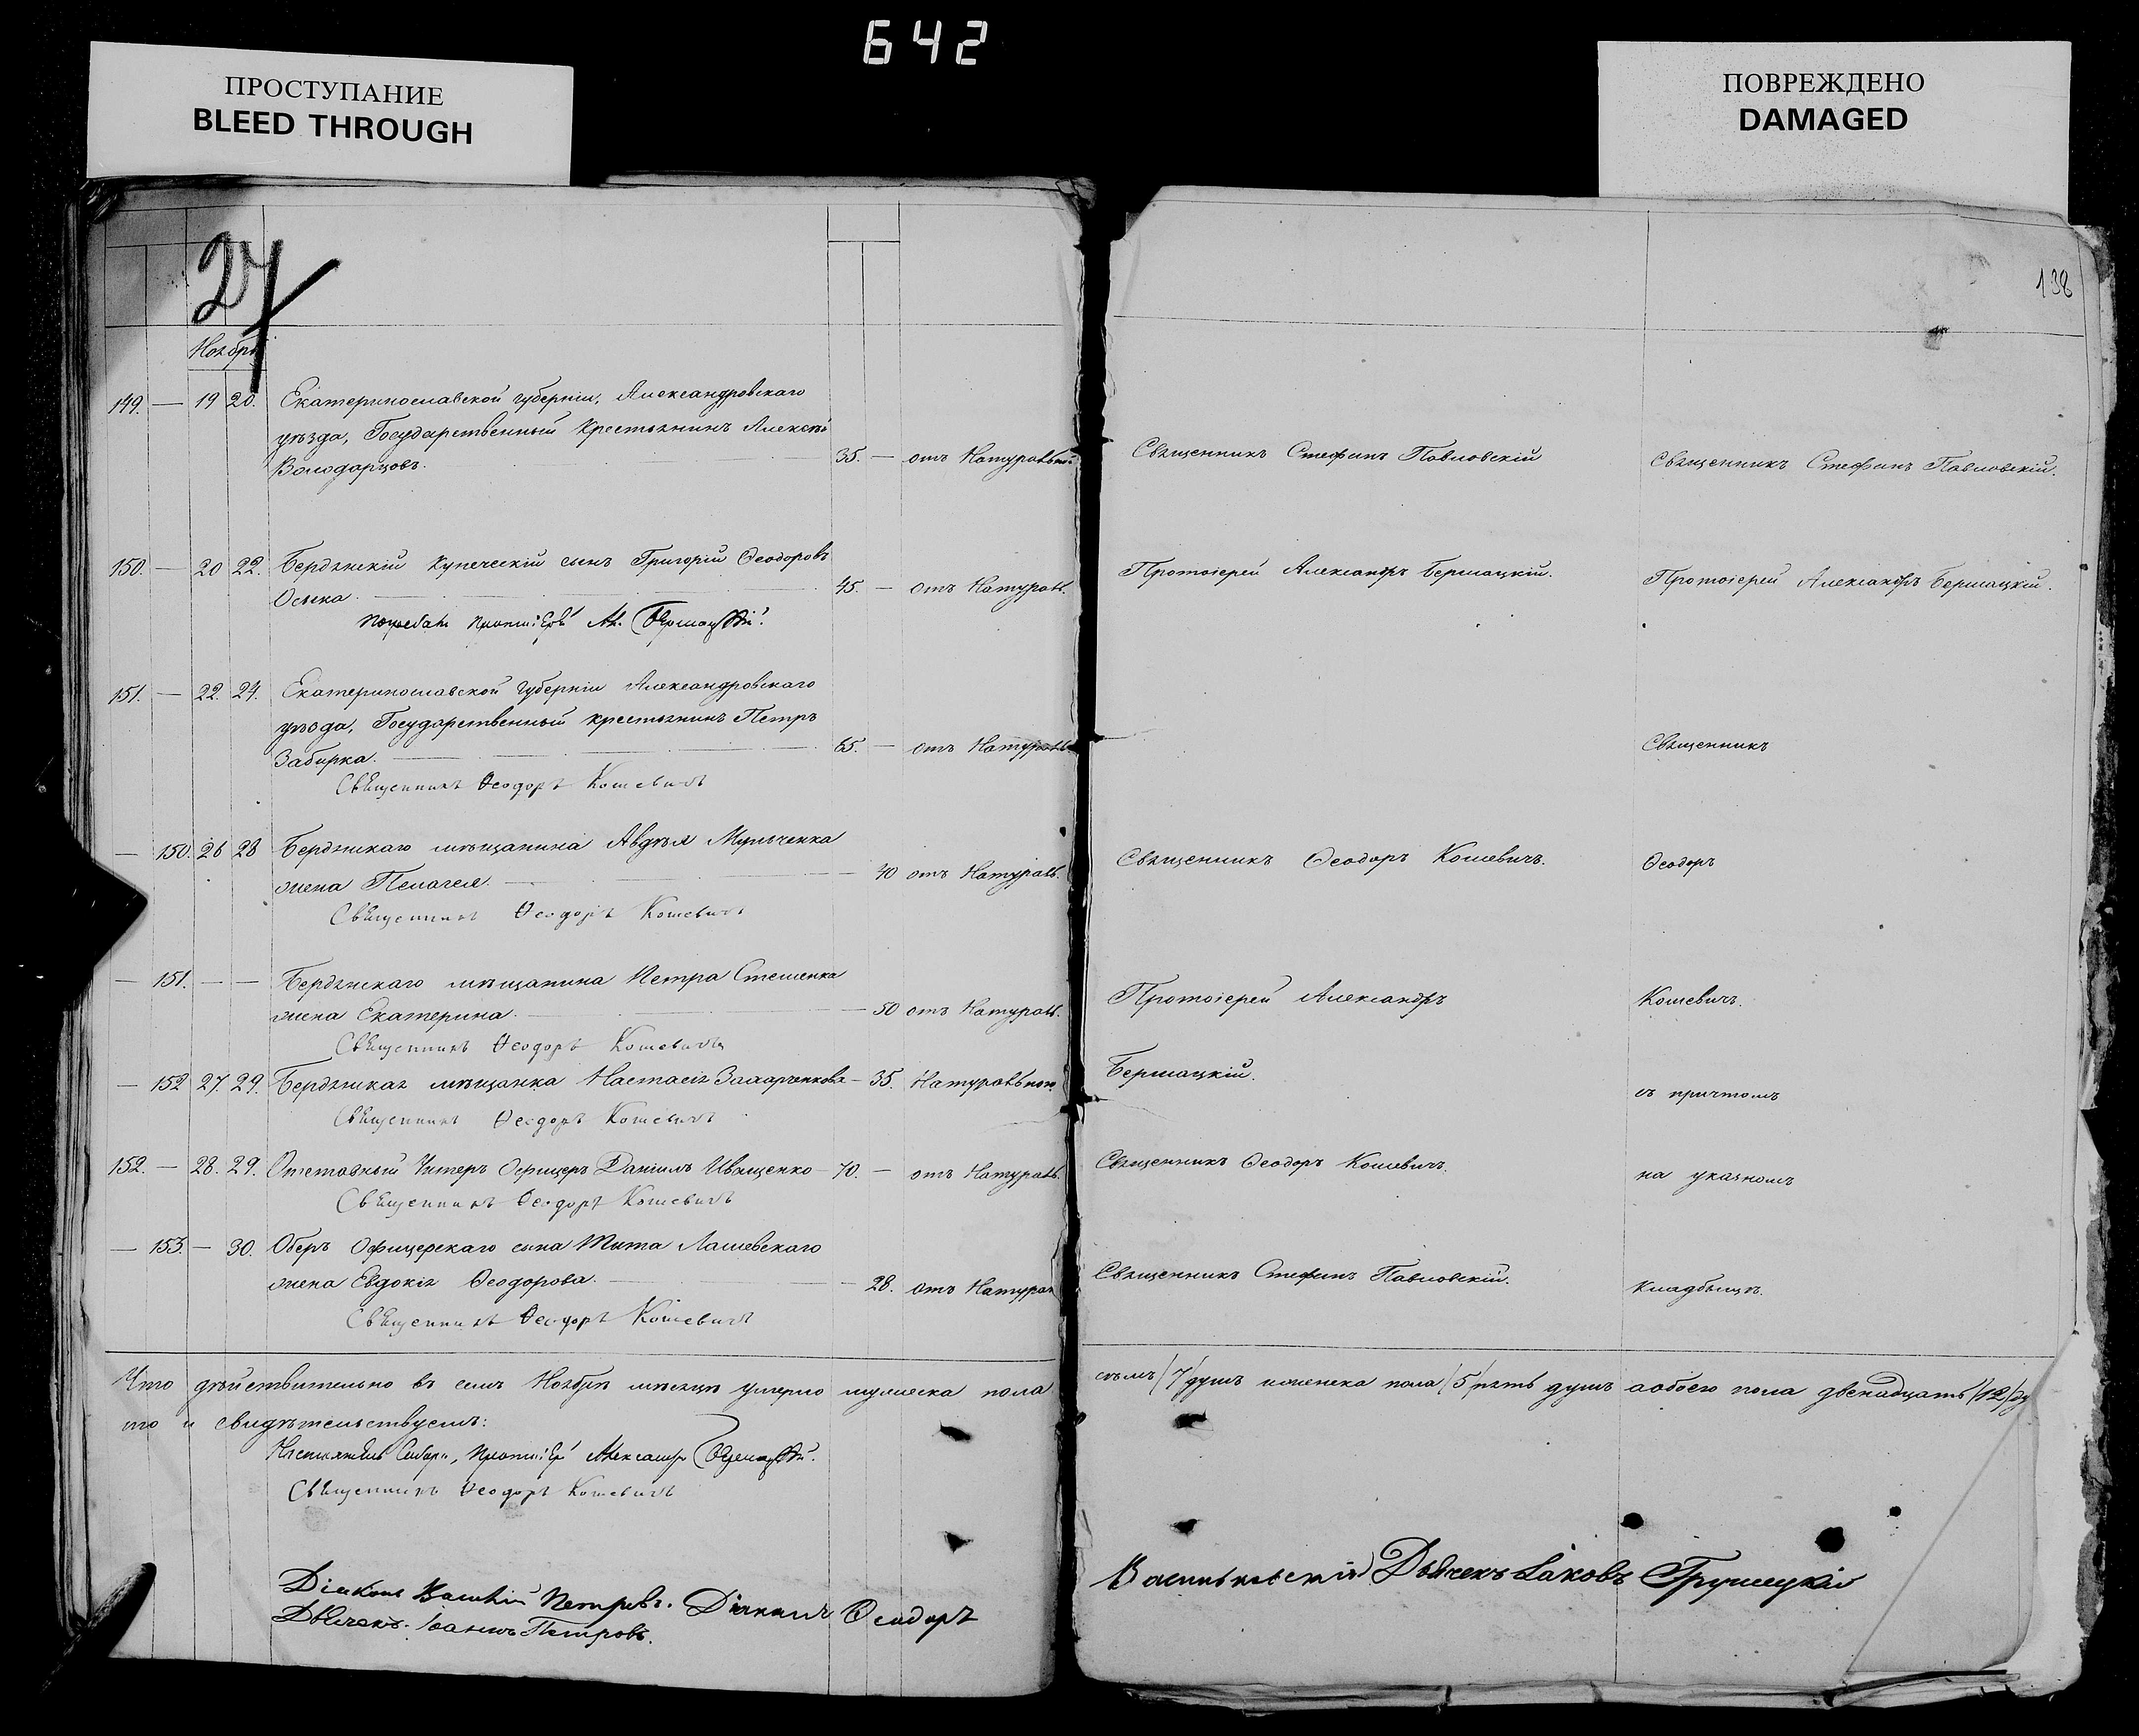 642
ПРОСТУПАНИЕ
BLEED THROUGH
ПОВРЕЖДЕНО
DAMAGED
138
Ноябрь
149. — 19 20. Екатеринославской губерніи, Александровскаго
уѣзда, Государственный крестьянинъ Алексѣй
Володарцовъ. 35. — отъ Натуральной Священникъ Стефанъ Павловскій Священникъ Стефанъ Павловскій.
150. — 20 22. Бердянскій купеческій сынъ Григорій Ѳеодоровъ
Осыка. 45. — отъ Натураль. Протоіерей Александръ Бершацкій. Протоіерей Александръ Бершацкій.
151. — 22. 24. Екатеринославской губерніи Александровскаго
уѣзда, Государственный крестьянинъ Петръ
Забирка. 65. — отъ Натураль. Священникъ
Священникъ Ѳеодоръ Кошевичъ
— 150. 26 28 Бердянскаго мѣщанина Авдѣя
жена Пелагея. — 40 отъ Натураль. Священникъ Ѳеодоръ Кошевичъ. Ѳеодоръ
Священникъ Ѳеодоръ Кошевичъ
— 151. — — Бердянскаго мѣщанина Петра Стешенка
жена Екатерина. — 50 отъ Натураль. Протоіерей Александръ Кошевичъ.
Священникъ Ѳеодоръ Кошевичъ
— 152 27. 29. Бердянская мѣщанка Настасія Захарченкова — 35. Натуральной Бершацкій. съ причтомъ
Священникъ Ѳеодоръ Кошевичъ
152. — 28. 29. Отставный Унтеръ Офицеръ Даніилъ Иващенко 70. — отъ Натураль. Священникъ Ѳеодоръ Кошевичъ. на указномъ
Священникъ Ѳеодоръ Кошевичъ
— 153. — 30. Оберъ Офицерскаго сына Тита Лашевскаго
жена Евдокія Ѳеодорова. — 28. отъ Натурал Священникъ Стефанъ Павловскій. кладбищѣ.
Священникъ Ѳеодоръ Кошевичъ
Что дѣйствительно въ семъ Ноябрѣ мѣсяцѣ умерло мужеска пола семь /7/ душъ и женска пола /5/ пять душъ а обоего пола двенадцать /12/ ду
то и свидѣтельствуемъ:
Протоіерей Александръ Бершацкій.
Священникъ Ѳеодоръ Кошевичъ
Діаконъ Василій Петровъ. Діаконъ Ѳеодоръ Васильковскій Дьячекъ Іаковъ Грушецкій
Дьячекъ Іоаннъ Петровъ.